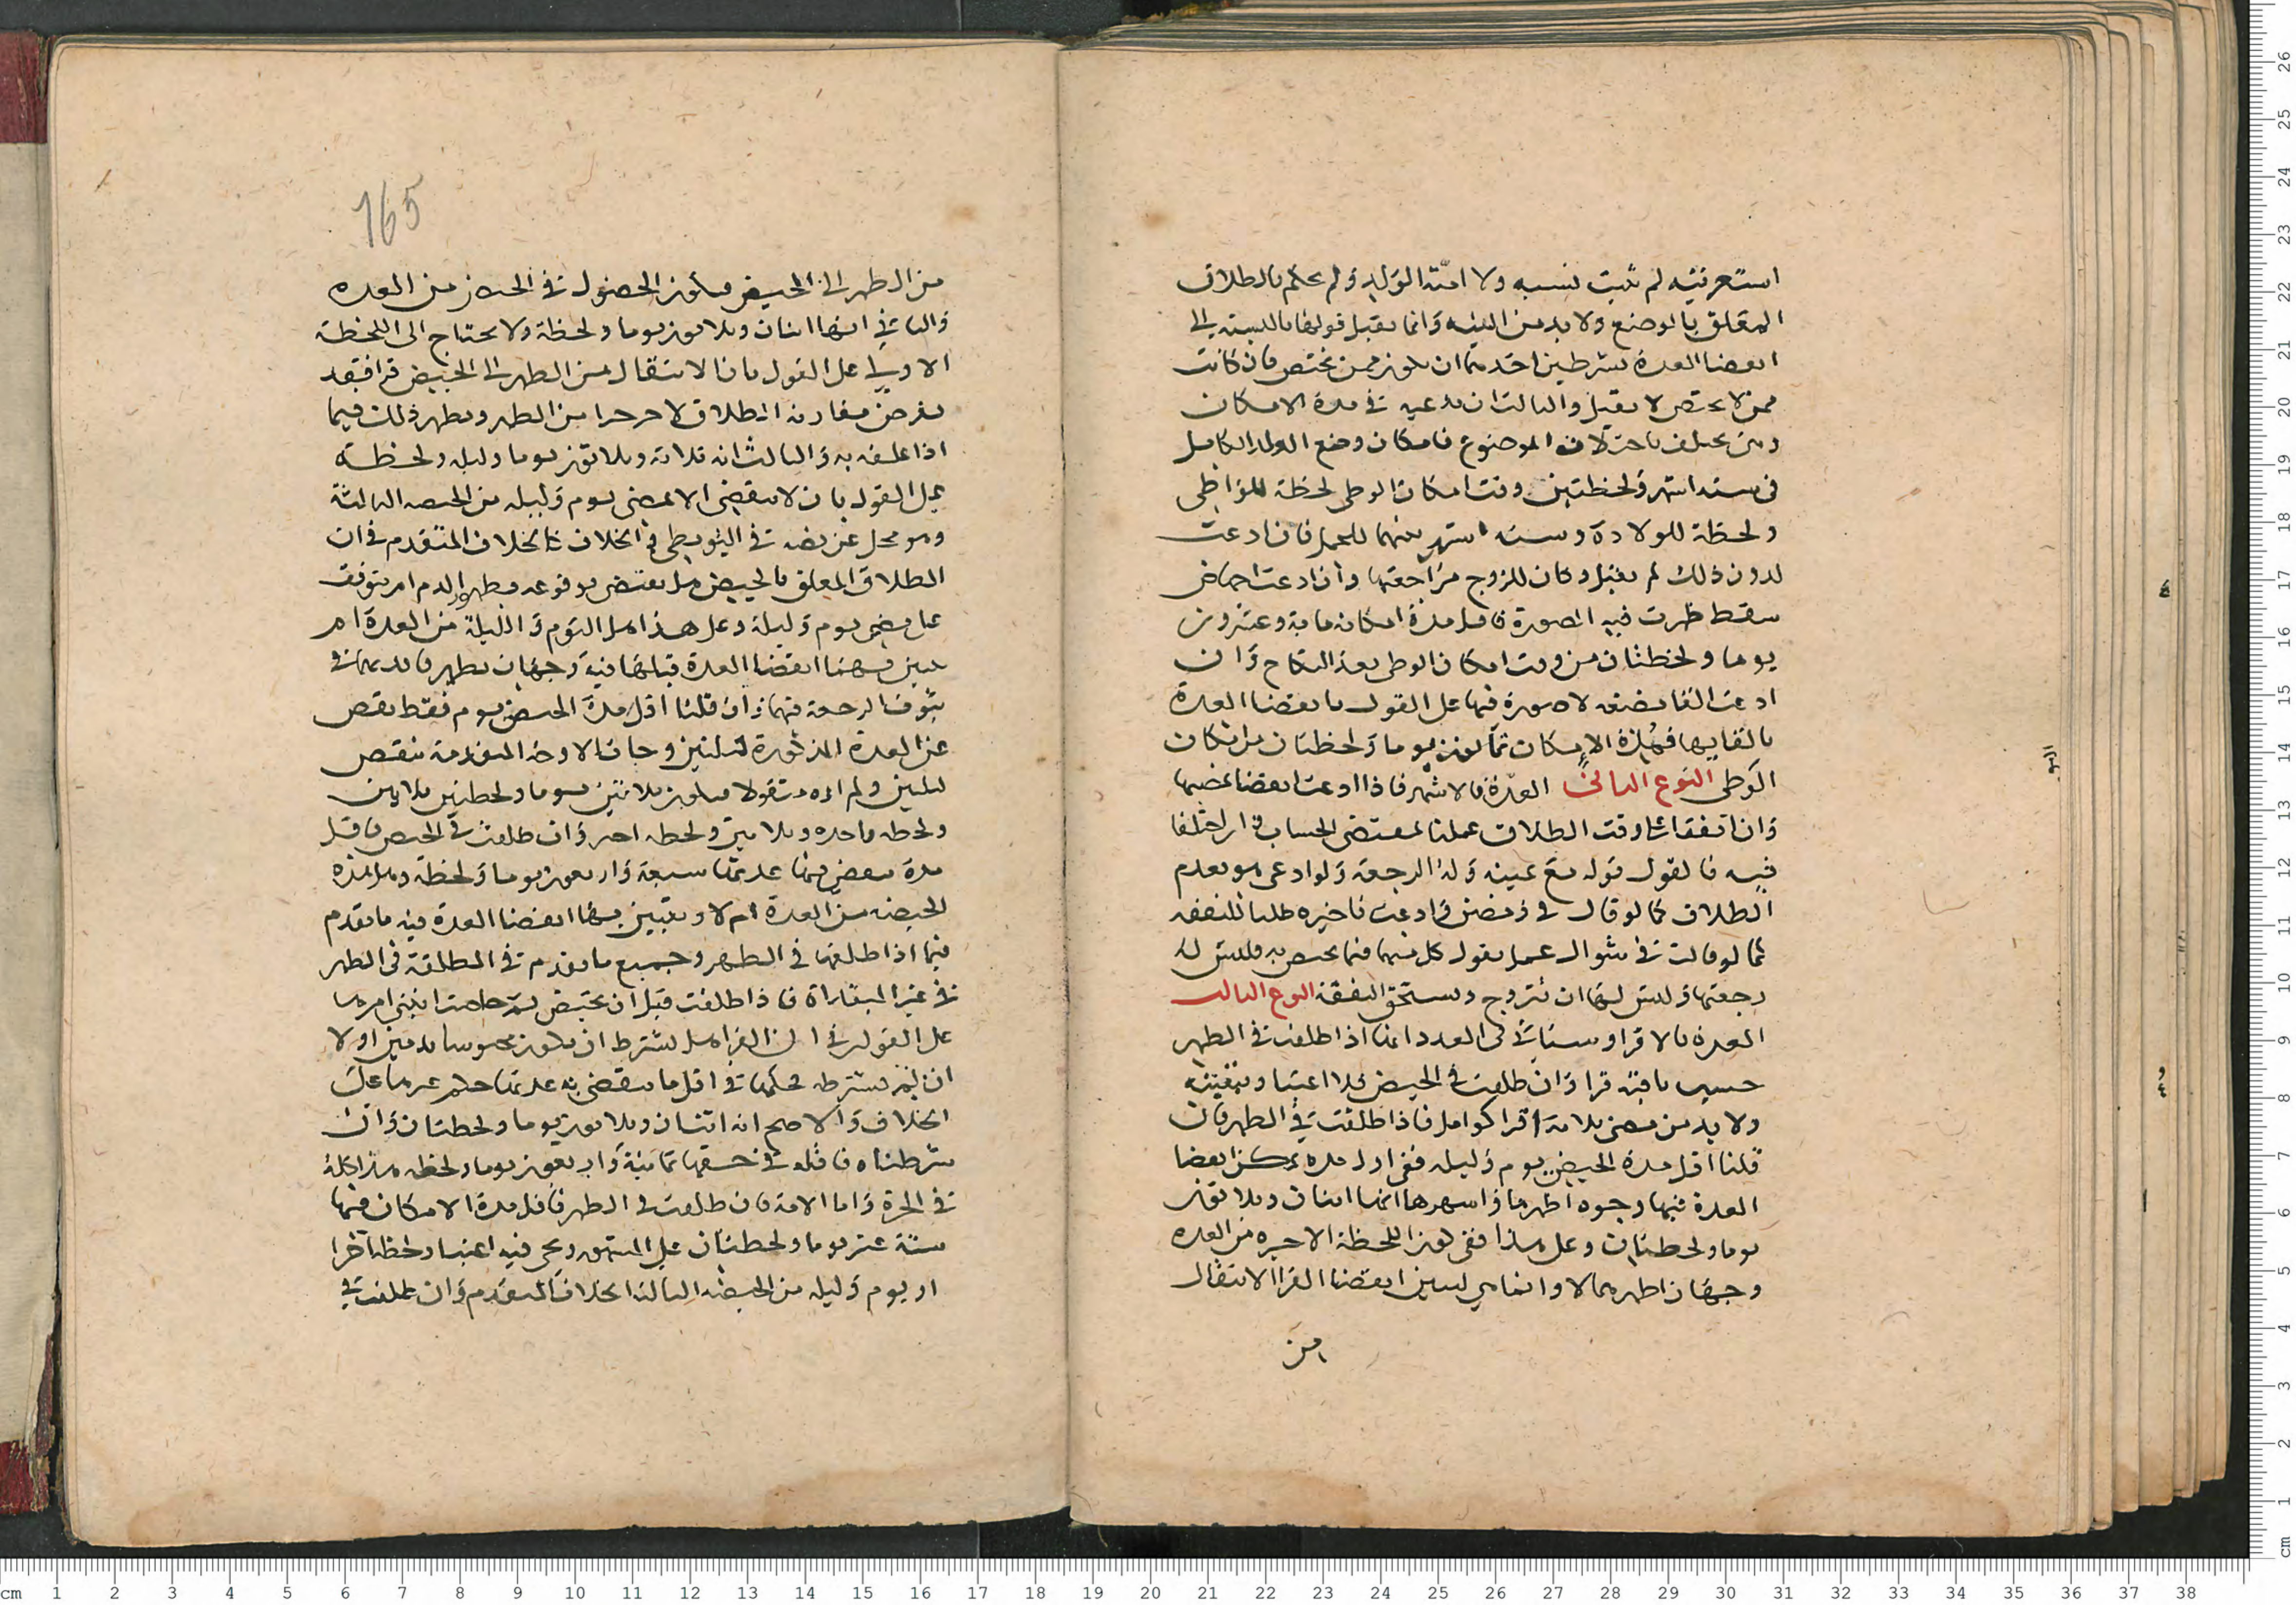 استعرفتيه لم يثبت نسبه ولا امّية الولد ولم يحكم بالطلاق
المعلق بالوضع ولا بد من البينه وانما يقبل قولها بالنسبة الى
انقضا العدة بشرطين احدهما ان يكون ممن تحيض فان كانت
ممن لا تحيض لا يقبل والثالث ان تدعيه في مدة الامكان
وهى تختلف باختلاف الموضوع فامكان وضع الولد الكامل
في ستة اشهر ولحظتين وقت امكان الوطي لحظة للوطي
ولحظة للولادة وستة اشهر بينهما للحمل فان ادعت
لدون ذلك لم يقبل وكان للزوج مراجعتها وان ادعت اجهاض
سقط ظهرت فيه الصورة فاقل مدة امكانه ماية وعشرون
يوما ولحظتان من وقت امكان الوطي بعد النكاح وان
ادعت القا مضغة لا صورة فيها على القول بانقضا العدة
بالقايها فمدة الامكان ثمانون يوما ولحظتان من امكان
الوطي النوع الثاني العدّة بالاشهر فاذا ادعت انقضا
وان اتفقا على وقت الطلاق عملنا بمقتضى الحساب وان اختلفا
فيه فالقول قوله مع يمينه وله الرجعة ولو ادعى هو تقدم
الطلاق كما لو قال في رمضان وادعت تاخيره طلبا للنفقه
كما لو قالت في شوال عمل بقول كل منهما فيما يختص به فليس له
رجعتها وليس لها ان تتزوج وتستحق النفقة النوع الثالث
العدة بالاقرا وسياتي في العدد انها اذا طلقت في الطهر
حسب باقيه قرا وان طلقت في الحيض فلا اعتبار ببقيته
ولا بد من مضى ثلاثة اقرا كوامل فاذا طلقت في الطهر فان
قلنا اقل مدة الحيض يوم وليلة ففي اول مدة يمكن انقضا
العدة فيها وجوه اظهرها واشهرها انها اثنان وثلاثون
يوما ولحظتان وعلى هذا ففي كون اللحظة الاخيره من العدة
وجهان اظهرهما لا وانما هي لتبين انقضا القرا الانتقال
من
165
من الطهر الى الحيض فيكون الحصول في الحيض من العده
والثاني انها اثنان وثلاثون يوما ولحظة ولا يحتاج الى اللحظة
الاولى على القول بان الانتقال من الطهر الى الحيض قرا فيقد
يفرض مقارنة الطلاق لاخر جزء من الطهر ويظهر ذلك فيما
اذا علقه به والثالث انه ثلاثة وثلاثون يوما وليله ولحظة
على القول بان لا ينقضي الا بمضى يوم وليله من الحيضة الثالثة
وهو محكي عن نصه في البويطي في الخلاف كالخلاف المتقدم في ان
الطلاق المعلق بالحيض هل يقتضى وقوعه بظهور الدم ام يتوقف
على مضى يوم وليلة وعلى هذا هل اليوم والليلة من العدة ام
يتبين بهما انقضا العدة قبلها فيه وجهان تظهر فايدتهما في
ثبوت الرجعة فيها وان قلنا اقل مدة الحيض يوم فقط نقص
عن العدة المذكورة ليلتين وجات الاوجه المتقدمة بنقص
ليلتين ولم ارهم تقولا فيكون ثلاثين يوما ولحظتين ثلاثين
ولحظه واحده وثلاثين ولحظه احد وان طلقت في الحيض فاقل
مدة تنقضي فيها عدتها سبعة واربعون يوما ولحظة وهل هذه
الحيضه من العدة ام لا وتبين بها انقضا العدة فيه ما تقدم
فيما اذا طلقها في الطهر وجميع ما تقدم في المطلقة في الطهر
في غير المبتداة فاذا طلقت قبل ان تحيض ثم حاضت انبنى امرها
على القولين في ان القرا هل يشترط ان يكون محوسا بدمين او لا
ان لم نشترطه فحكمها في اقل ما ينقضي به عدتها حكم غيرها على
الخلاف والاصح انه اثنان وثلاثون يوما ولحظتان وان
شرطناه فاقله في حقها ثمانية واربعون يوما ولحظه هذا كله
في الحرة واما الامة فان طلقت في الطهر فاقل مدة الامكان فيها
ستة عشر يوما ولحظتان على المشهور ويجي فيه اعتبار لحظة اخرا
او يوم وليله من الحيضه الثالثة الخلاف المتقدم وان طلقت في